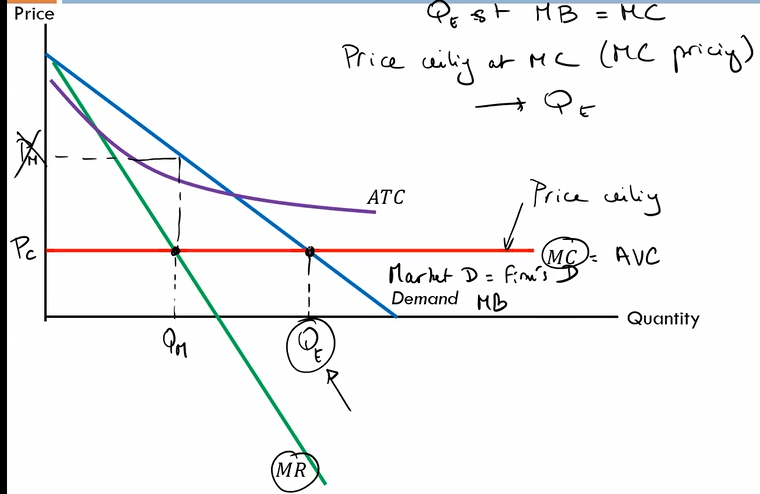 Price
Q_E st MB = MC
Price ceiling at MC (MC pricing)
→ Q_E
P_M
ATC
Price ceiling
P_C
MC = AVC
Market D = Firm's D
Demand MB
Quantity
Q_M
Q_E
MR